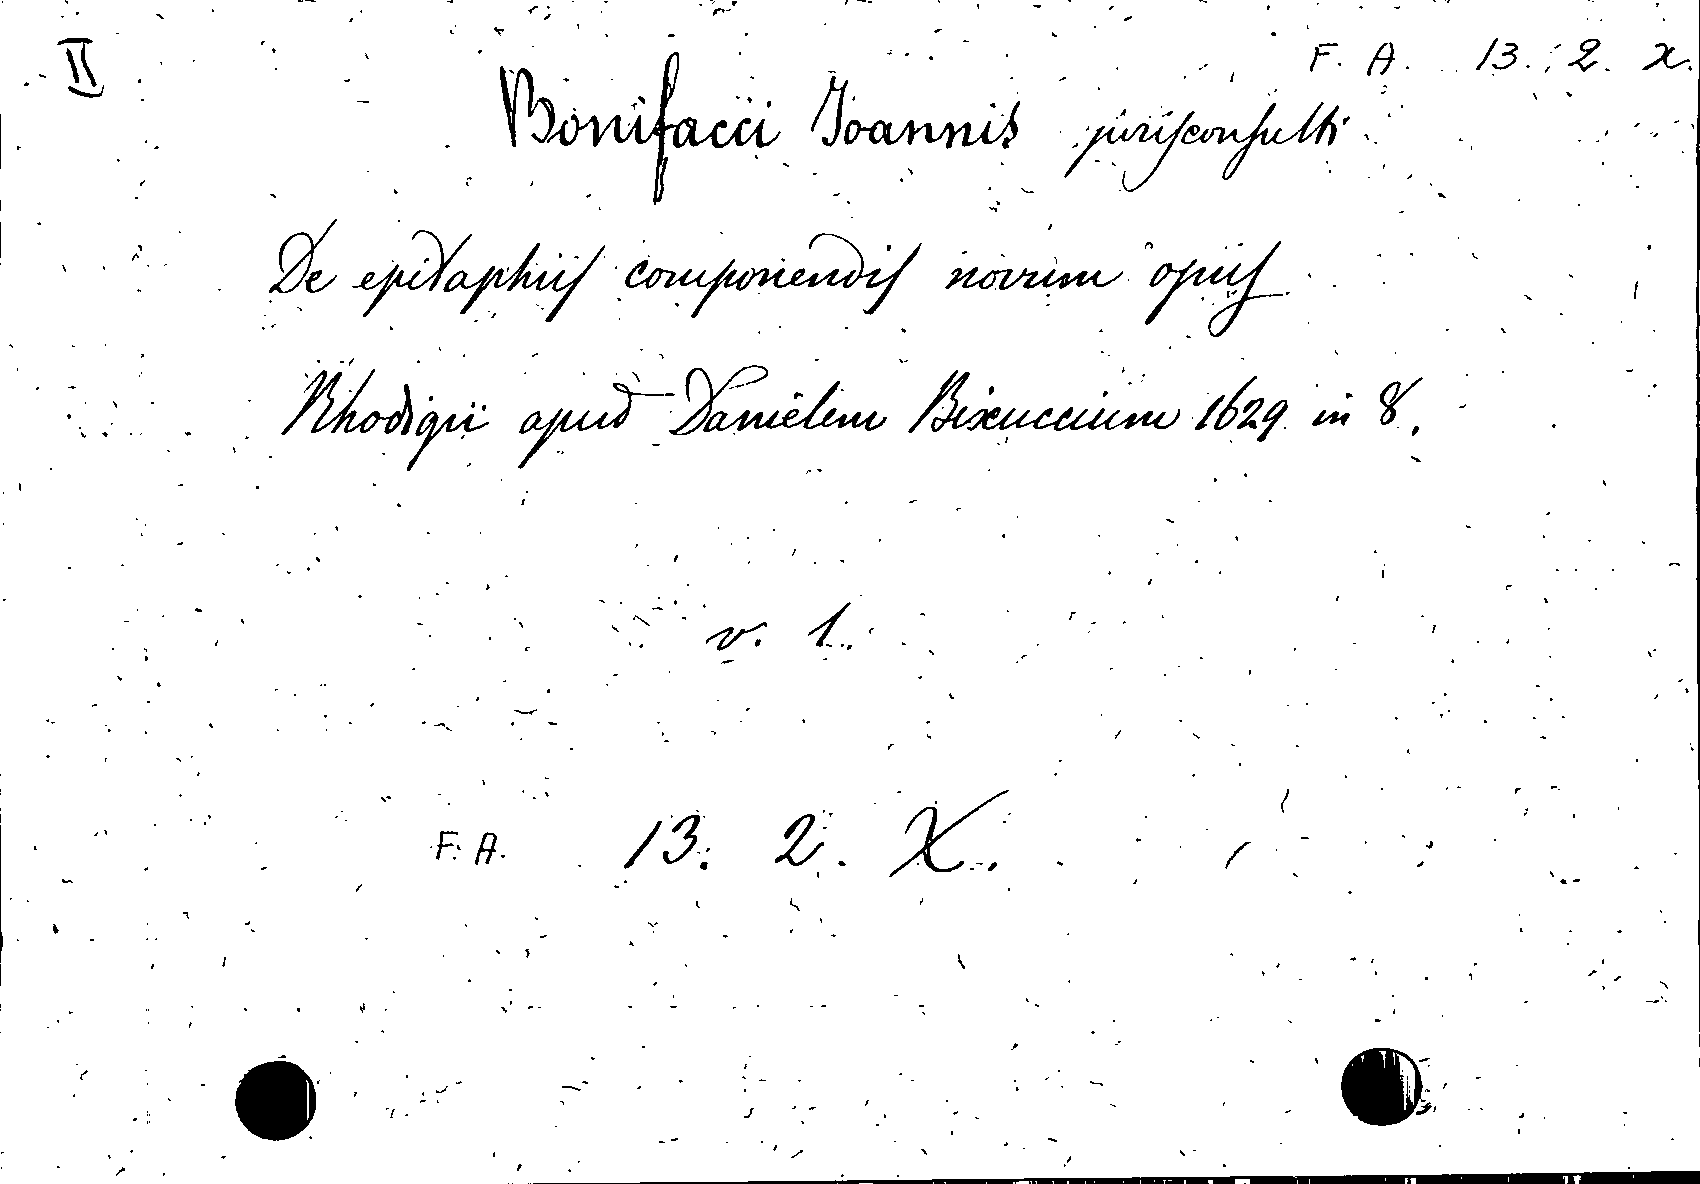 II
F. A. 13. 2. X.
Bonifacii Ioannis jurisconsulti
De epitaphiis componendis novum opus
Rhodigii apud Danielem Bixuccium 1629 in 8.
v. 1.
F. A. 13. 2. X.